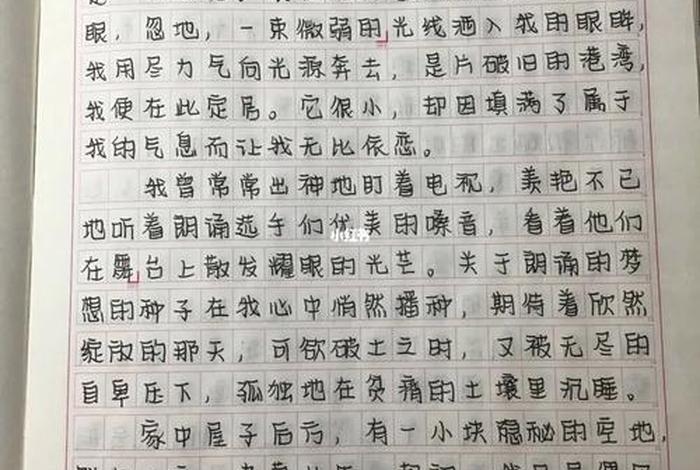 眼，忽地，一束微弱的光线洒入我的眼眸，
我用尽力气向光源奔去，是片破旧的港湾，
我便在此定居。它很小，却因填满了属于
我的气息而让我无比依恋。
我曾常常出神地盯着电视，羡艳不已
地听着朗诵选手们优美的嗓音，看着他们
小红书
在舞台上散发耀眼的光芒。关于朗诵的梦
想的种子在我心中悄然播种，期待着欣然
绽放的那天，可欲破土之时，又被无尽的
自卑压下，孤独地在贫瘠的土壤里沉睡。
家中屋子后方，有一小块隐秘的空地，